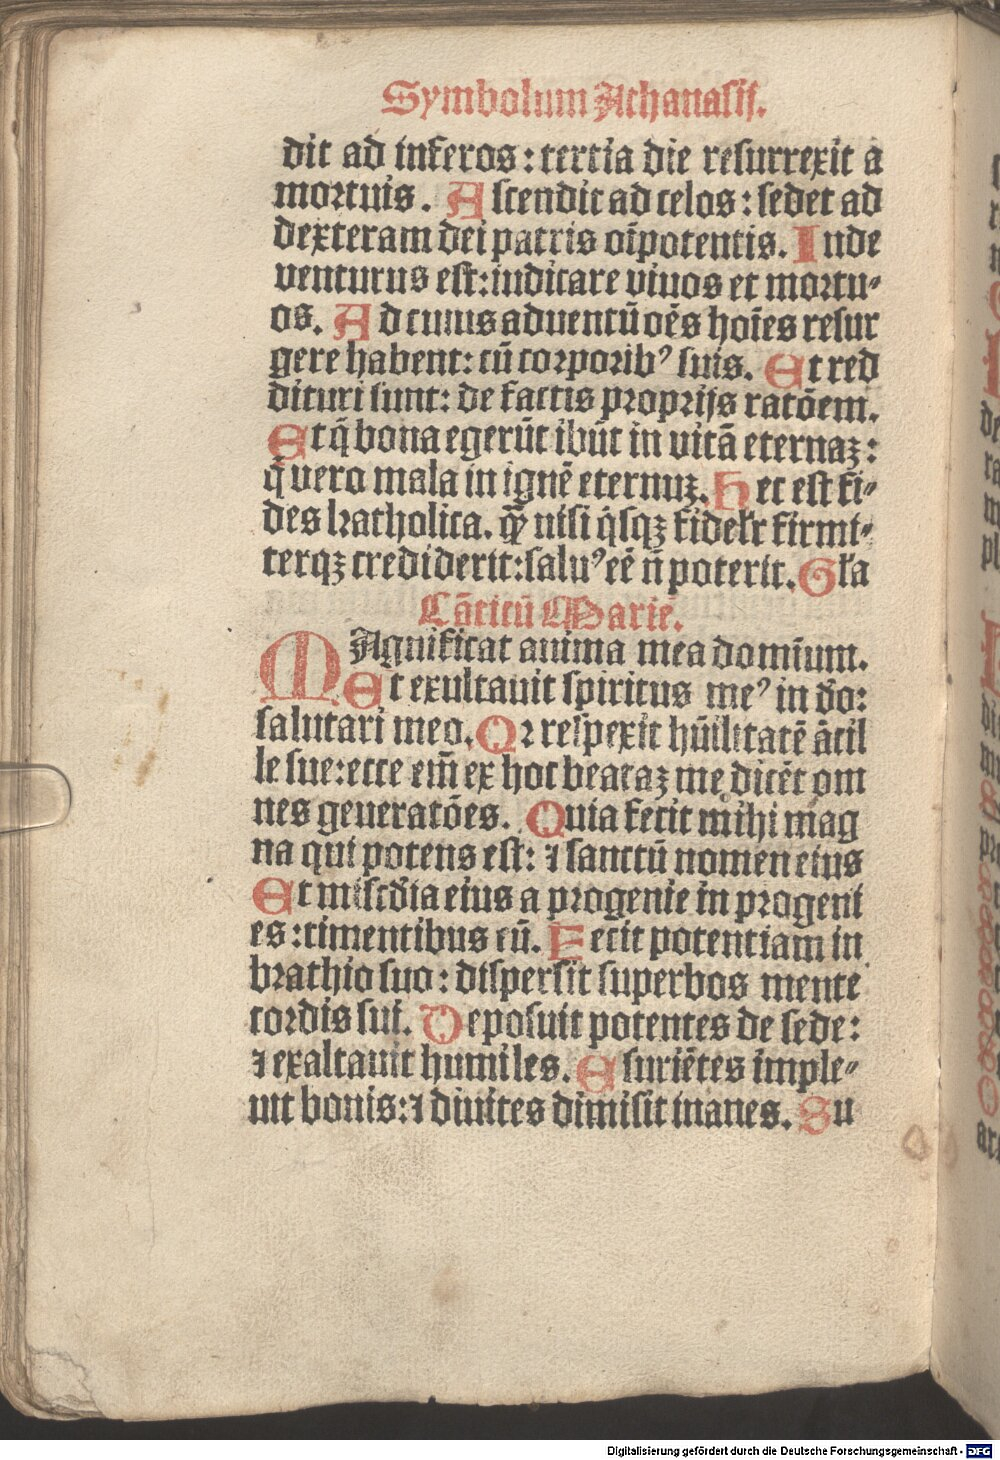 Symbolum Athanasij.
dit ad inferos : tertia die resurrexit a
mortuis . Ascendit ad celos : sedet ad
dexteram dei patris oīpotentis. Inde
venturus est: iudicare viuos et mortu⸗
os. Ad cuius aduentū oēs hoīes resur
gere habent: cū corporibꝰ suis. Et red
dituri sunt: de factis proprijs ratōem.
Et q̄ bona egerūt ibūt in vitā eternaꝫ :
q̄ vero mala in ignē eternuꝫ. Hec est fi⸗
des katholica. quā nisi q̇sqꝫ fidelr̄ firmi⸗
terqꝫ crediderit: saluꝰ eē n̄ poterit. Gl'a
Cāticū Marie.
MAgnificat anima mea domīum.
Et exultauit spiritus meꝰ in d̄o:
salutari meo. Qꝛ respexit hūilitatē ācil
le sue: ecce em̄ ex hoc beataꝫ me dicēt om
nes generatōes. Quia fecit mihi mag
na qui potens est: ⁊ sanctū nomen eius
Et misc̄dia eius a progenie in progeni
es : timentibus eū. Fecit potentiam in
brachio suo : dispersit superbos mente
cordis sui. Deposuit potentes de sede :
⁊ exaltauit humiles. Esuriētes imple⸗
uit bonis: ⁊ diuites dimisit inanes. Su
Digitalisierung gefördert durch die Deutsche Forschungsgemeinschaft - DFG